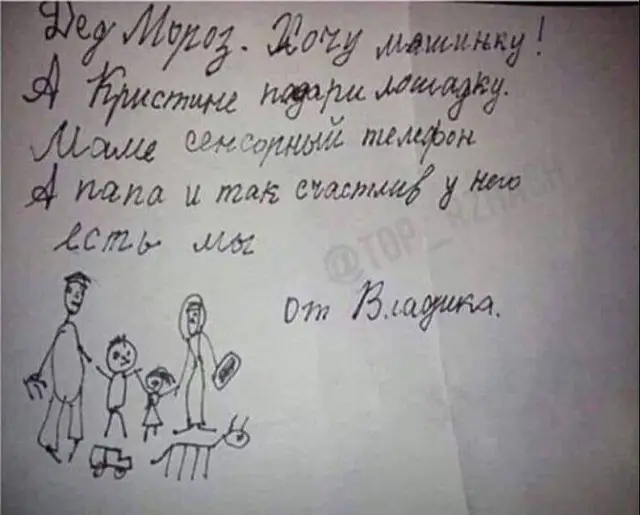 Дед Мороз. Хочу машинку!
А Кристине подари лошадку.
Маме сенсорный телефон
А папа и так счастлив у него
есть мы
от Владика.